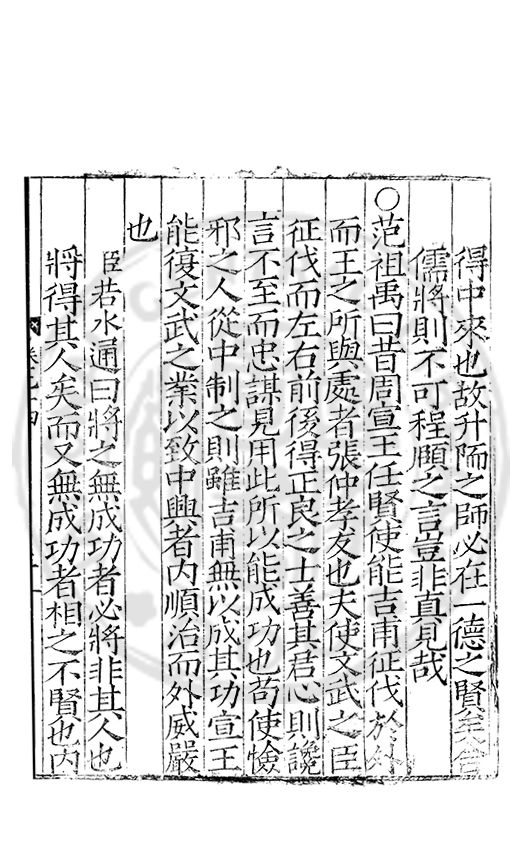 得中來也故升陑之師必在一德之賢矣舍
儒將則不可程頥之言豈非真見哉
○范祖禹曰昔周宣王任賢使能吉甫征伐於外
而王之所與處者張仲孝友也夫使文武之臣
征伐而左右前後得正良之士善其君心則讒
言不至而忠謀見用此所以能成功也苟使憸
邪之人從中制之則雖吉甫無以成其功宣王
能復文武之業以致中興者內順治而外威嚴
也
臣若水通曰將之無成功者必將非其人也
將得其人矣而又無成功者相之不賢也內